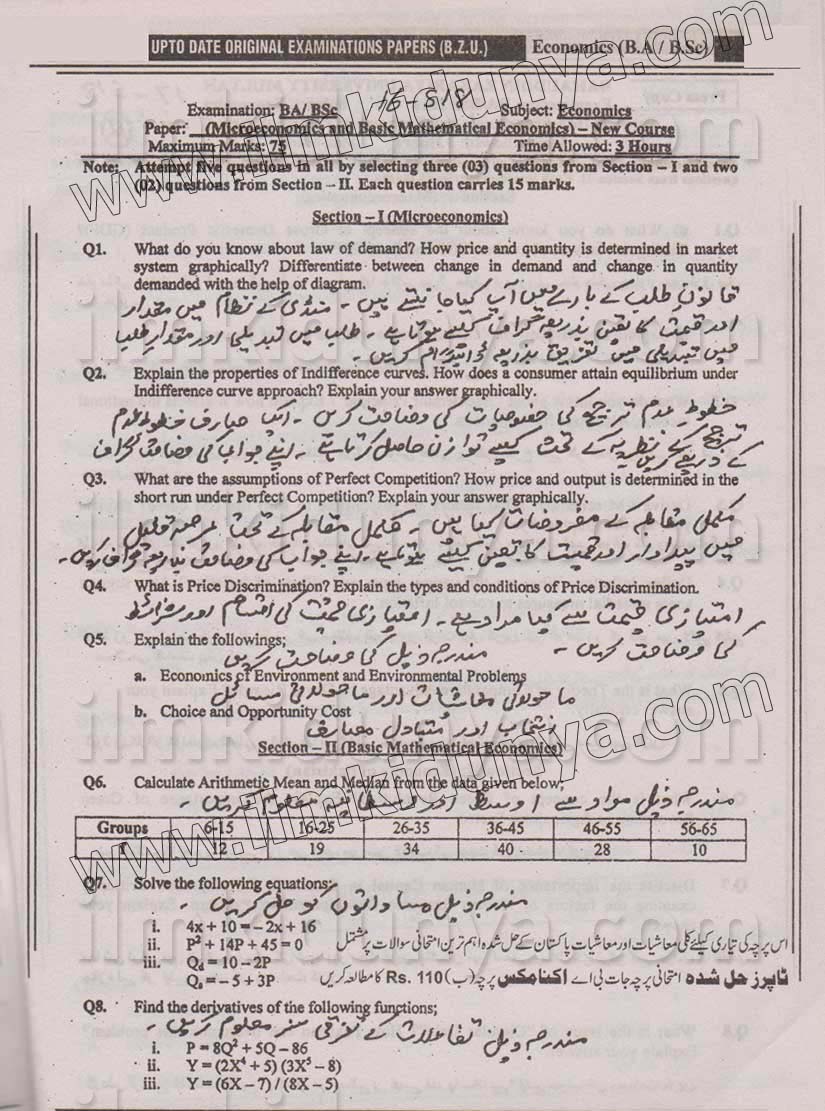 UPTO DATE ORIGINAL EXAMINATIONS PAPERS (B.Z.U.) Economics (B.A / B.Sc)
Examination: BA/ BSc Subject: Economics
Paper: (Microeconomics and Basic Mathematical Economics) – New Course
Maximum Marks: 75 Time Allowed: 3 Hours
Note: Attempt five questions in all by selecting three (03) questions from Section – I and two
(02) questions from Section – II. Each question carries 15 marks.
Section – I (Microeconomics)
Q1. What do you know about law of demand? How price and quantity is determined in market
system graphically? Differentiate between change in demand and change in quantity
demanded with the help of diagram.
قانونِ طلب کے بارے میں آپ کیا جانتے ہیں ۔ منڈی کے نظام میں مقدار
اور قیمت کا تعین بذریعہ گراف کیسے ہوتا ہے ۔ طلب میں تبدیلی اور مقدارِ طلب
میں تبدیلی میں تفریق بذریعہ ڈائیگرام کریں ۔
Q2. Explain the properties of Indifference curves. How does a consumer attain equilibrium under
Indifference curve approach? Explain your answer graphically.
خطوطِ عدم ترجیح کی خصوصیات کی وضاحت کریں ۔ ایک صارف خطوطِ عدم
ترجیح کے نظریہ کے تحت کیسے توازن حاصل کرتا ہے ۔ اپنے جواب کی وضاحت گراف
کے ذریعے کریں ۔
Q3. What are the assumptions of Perfect Competition? How price and output is determined in the
short run under Perfect Competition? Explain your answer graphically.
مکمل مقابلہ کے مفروضات کیا ہیں ۔ مکمل مقابلہ کے تحت عرصہ قلیل
میں پیداوار اور قیمت کا تعین کیسے ہوتا ہے ۔ اپنے جواب کی وضاحت بذریعہ گراف کریں ۔
Q4. What is Price Discrimination? Explain the types and conditions of Price Discrimination.
امتیازی قیمت سے کیا مراد ہے ۔ امتیازی قیمت کی اقسام اور شرائط
کی وضاحت کریں ۔
Q5. Explain the followings;
مندرجہ ذیل کی وضاحت کریں
a. Economics of Environment and Environmental Problems
ماحولیاتی معاشیات اور ماحولیاتی مسائل
b. Choice and Opportunity Cost
انتخاب اور متبادل مصارف
Section – II (Basic Mathematical Economics)
Q6. Calculate Arithmetic Mean and Median from the data given below;
مندرجہ ذیل مواد سے اوسط اور وسطانیہ معلوم کریں ۔
Groups 6-15 16-25 26-35 36-45 46-55 56-65
f 12 19 34 40 28 10
Q7. Solve the following equations;
مندرجہ ذیل مساواتوں کو حل کریں ۔
i. 4x + 10 = – 2x + 16
ii. P² + 14P + 45 = 0
iii. Qd = 10 – 2P
Qs = – 5 + 3P
اس پرچہ کی تیاری کیلئے کلی معاشیات اور معاشیات پاکستان کے حل شدہ اہم ترین امتحانی سوالات پر مشتمل
ٹاپرز حل شدہ امتحانی پرچہ جات بی اے اکنامکس پرچہ (ب) Rs. 110 کا مطالعہ کریں
Q8. Find the derivatives of the following functions;
مندرجہ ذیل تفاعلات کے تفرقی سر معلوم کریں ۔
i. P = 8Q² + 5Q – 86
ii. Y = (2X⁴ + 5) (3X⁵ – 8)
iii. Y = (6X – 7) / (8X – 5)
www.ilmkidunya.com
www.ilmkidunya.com
ilmkidunya.com
ilmkidunya.com
ilmkidunya.com
ilmkidunya.com
ilmkidunya.com